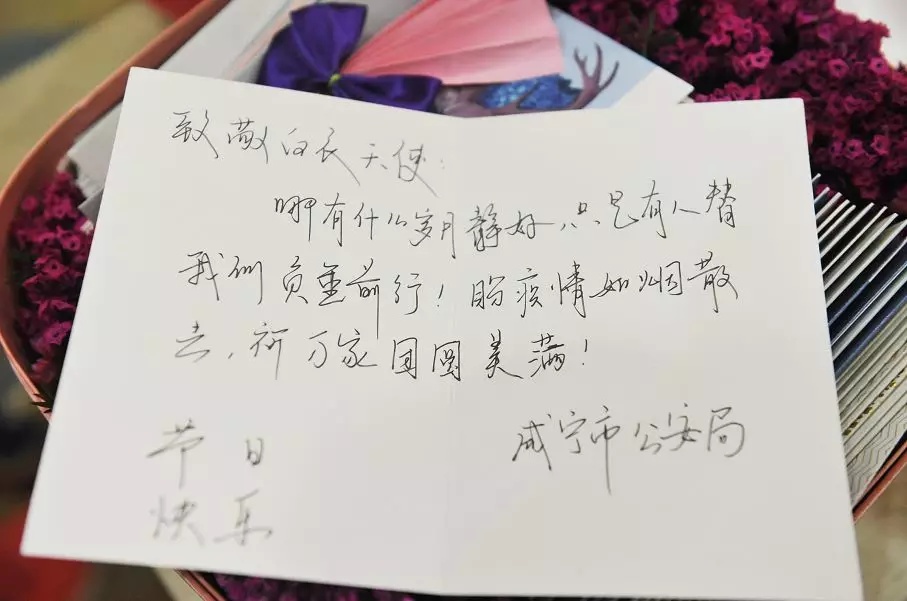 致敬白衣天使：
哪有什么岁月静好，只是有人替
我们负重前行！盼疫情如烟散
去，祈万家团圆美满！
咸宁市公安局
节日
快乐